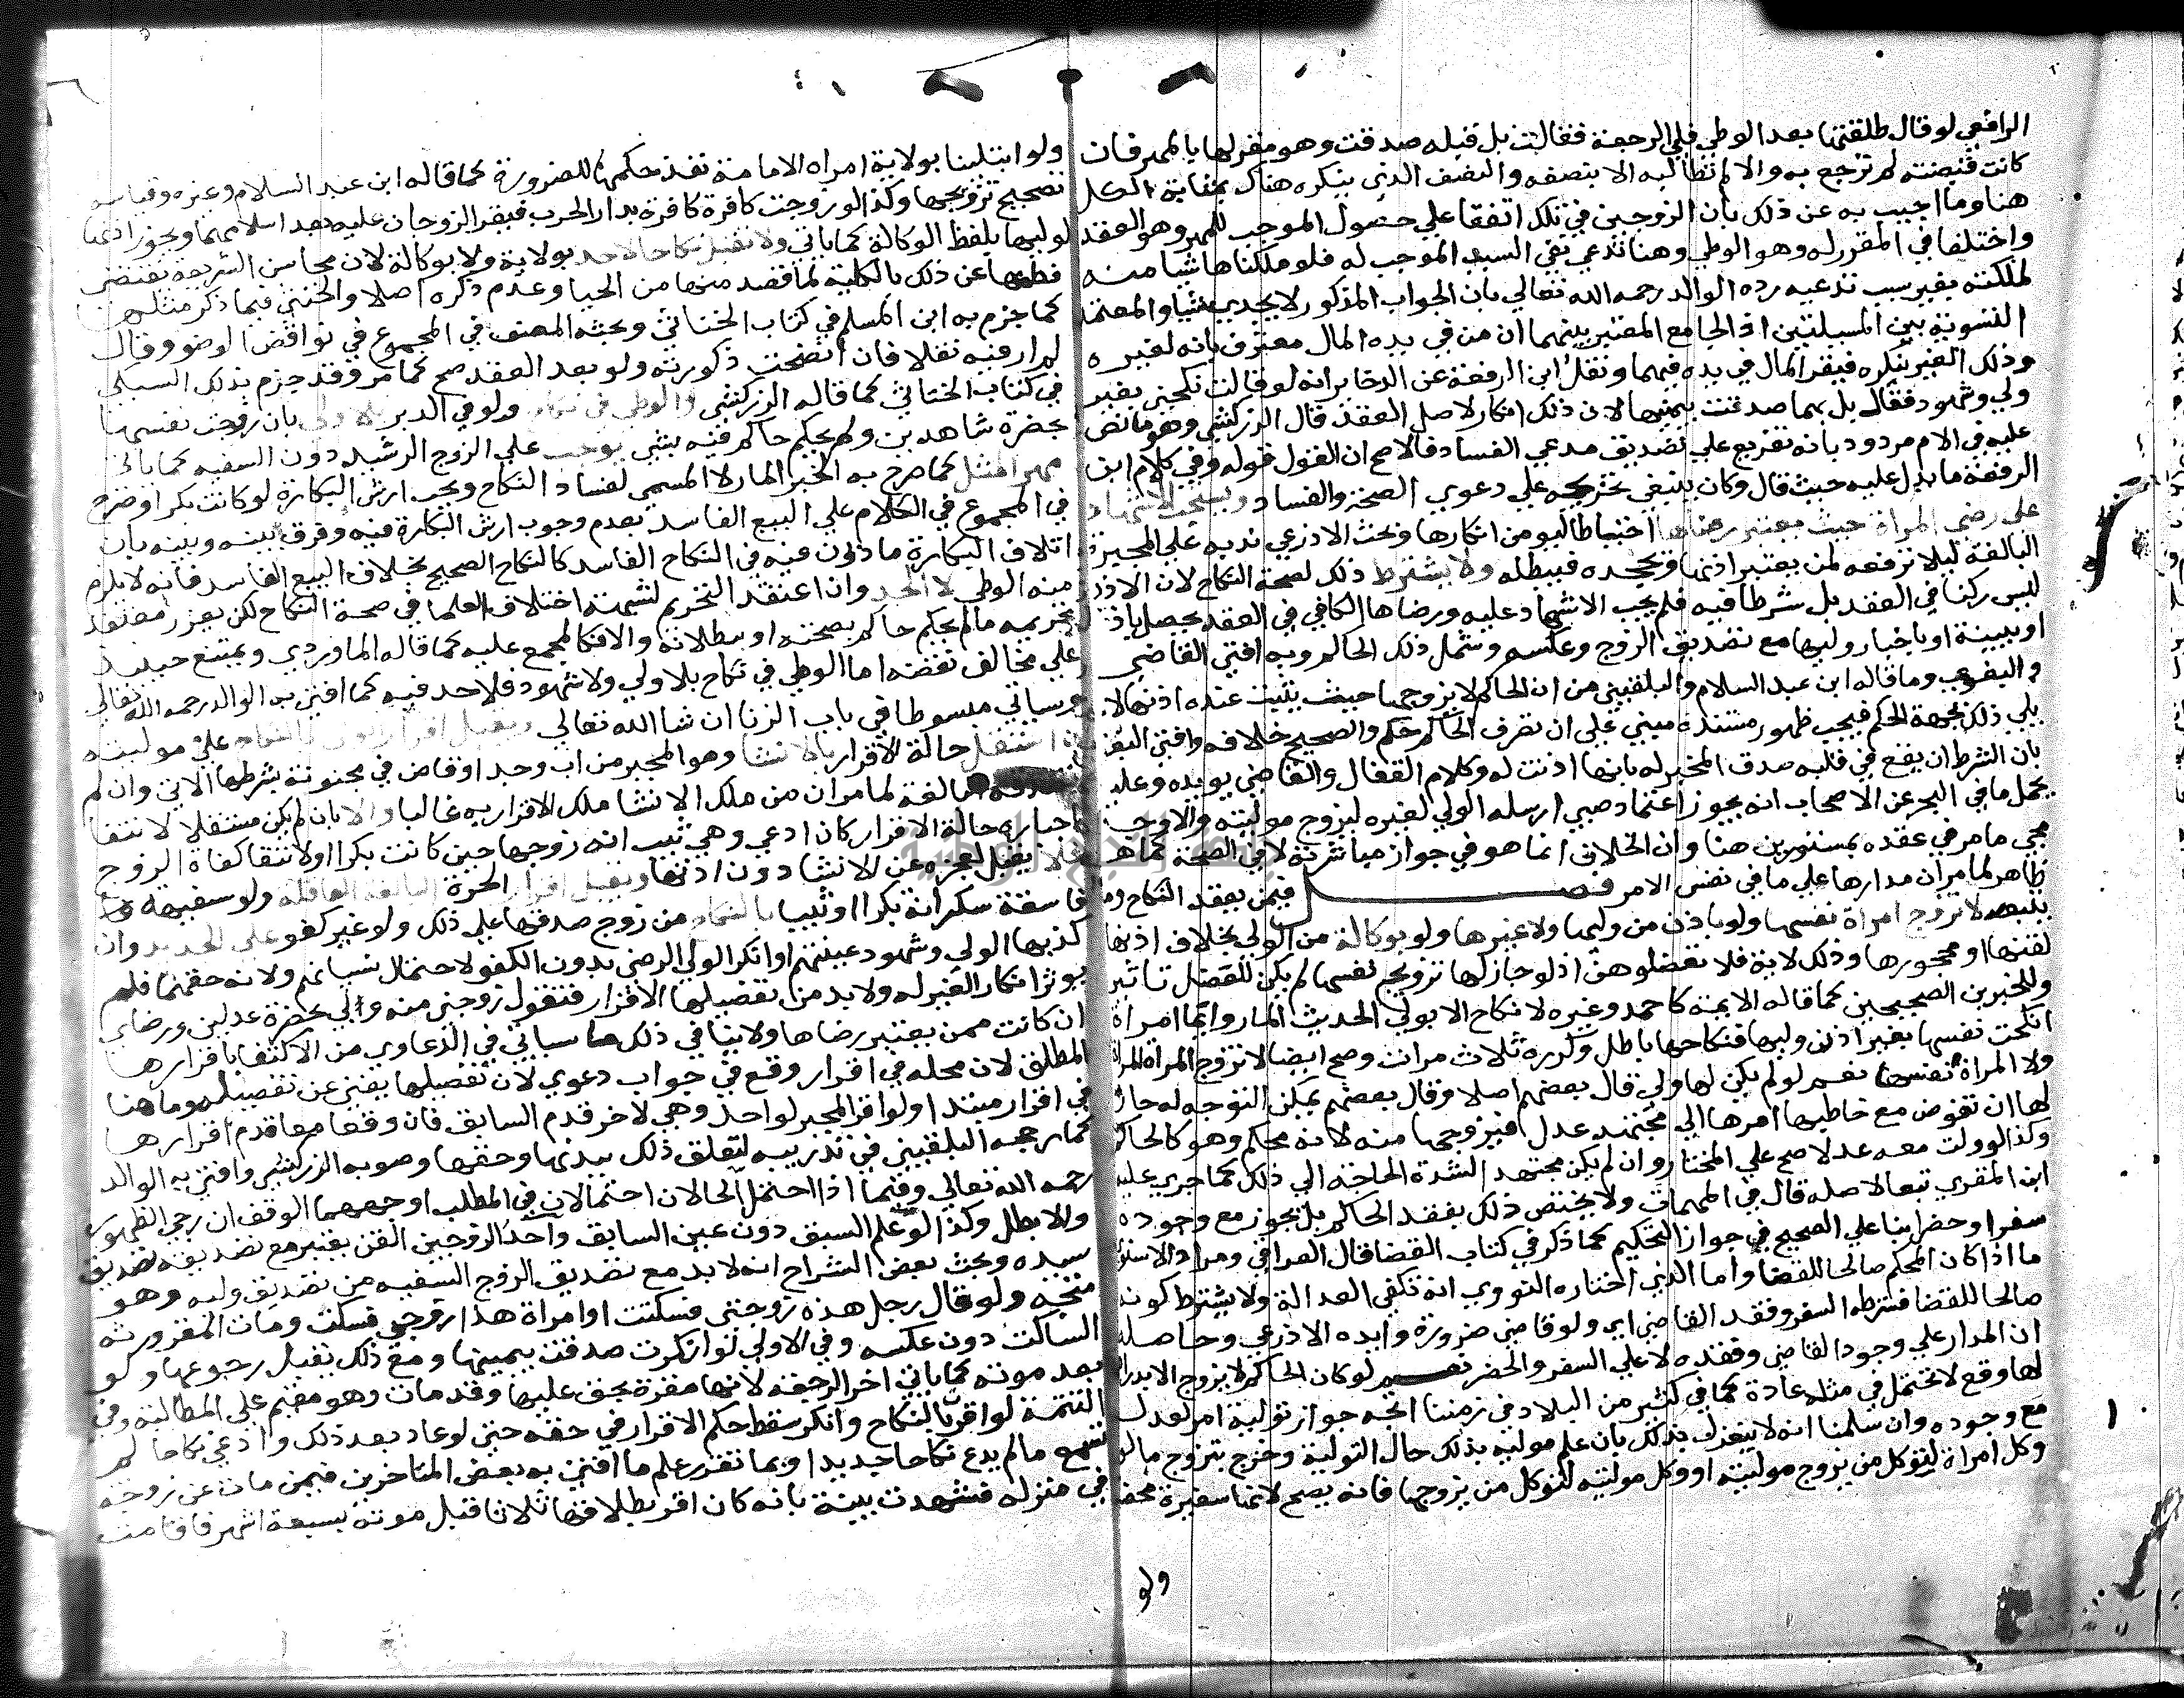 الرافعي لو قال طلقتها بعد الوطي فلي الرجعة فقالت بل قبله صدقت وهو مقر لها بالمهر فان
كانت قبضته لم ترجع به والا لم تطالبه الا بنصفه والنصف الذي ينكره هناك بمثابة الكل
هنا وما اجيب به عن ذلك بان الزوجين في تلك اتفقا علي حصول الموجب للمهر وهو العقد
واختلفا في المقرر له وهو الوطي وهنا تدعي نفي السبب الموجب له فلو ملكناها شيا منه
لملكته بغير سبب تدعيه رده الوالد رحمه الله تعالي بان الجواب المذكور لا يجدي شيا والمعتمد
التسوية بين المسيلتين اذ الجامع المعتبر بينهما ان من في يده المال معترف بانه لغيره
وذلك الغير ينكره فيقر المال في يده فيهما ونقل ابن الرفعة عن الدخاير انه لو قالت نكحني بغير
ولي وشهود فقال بل بهما صدقت بيمينها لان ذلك انكار لاصل العقد قال الزركشي وهو ما نص
عليه في الام مردود بانه تفريع علي تصديق مدعي الفساد فالاصح ان القول قوله وفي كلام ابن
الرفعة ما يدل عليه حيث قال وكان ينبغي تخريجه علي دعوي الصحة والفساد ويستحب الاشهاد
علي رضي المراة حيث يعتبر رضاها احتياطا ليومن انكارها وبحث الاذرعي ندبه علي المجبرة
البالغة ليلا ترفعه لمن يعتبر اذنها وتجحده فيبطله ولا يشترط ذلك لصحة النكاح لان الاذن
ليس ركنا في العقد بل شرطا فيه فلم يجب الاشهاد عليه ورضاها الكافي في العقد يحصل باذنها
او ببينة او باخبار وليها مع تصديق الزوج وعكسه وشمل ذلك الحاكم وبه افتي القاضي
والبغوي وما قاله ابن عبد السلام والبلقيني من ان الحاكم لا يزوجها حيث يثبت عنده اذنها لانه
يلي ذلك بجهة الحكم فيجب ظهور مستنده مبني علي ان تصرف الحاكم حكم والصحيح خلافه وافتي البغوي
بان الشرط ان يقع في قلبه صدق المخبر له بانها اذنت له وكلام القفال والقاضي يويده وعليه
يحمل ما في البحر عن الاصحاب انه يجوز اعتماد صبي ارسله الولي لغيره ليزوج موليته والاوجه
مجي ما مر في عقده بمستورين هنا وان الخلاف انما هو في جواز مباشرته لا في الصحة كما هو
ظاهر لما مر ان مدارها علي ما في نفس الامر فصل فيمن يعقد النكاح وما
يتبعه لا تزوج امراة نفسها ولو باذن من وليها ولا غيرها ولو بوكالة من الولي بخلاف اذنها
لقنها او محجورها وذلك لاية فلا تعضلوهن اذ لو جاز لها تزويج نفسها لم يكن للعضل تاثير
وللخبرين الصحيحين كما قاله الايمة كاحمد وغيره لا نكاح الا بولي الحديث المار وايما امراة
انكحت نفسها بغير اذن وليها فنكاحها باطل وكرره ثلاث مرات وصح ايضا لا تزوج المراة المراة
ولا المراة نفسها نعم لو لم يكن لها ولي قال بعضهم اصلا وقال بعضهم يمكن التوجه له جاز
لها ان تفوض مع خاطبها امرها الي مجتهد عدل فيزوجها منه لانه محكم وهو كالحاكم
وكذا لو ولت معه عدلا صح علي المختار وان لم يكن مجتهدا لشدة الحاجة الي ذلك كما جري عليه
ابن المقري تبعا لاصله قال في المهمات ولا يختص ذلك بفقد الحاكم بل يجوز مع وجوده
سفرا وحضرا بنا علي الصحيح في جواز التحكيم كما ذكر في كتاب القضا قال العراقي ومراد الاسنوي
ما اذا كان المحكم صالحا للقضا واما الذي اختاره النووي انه تكفي العدالة ولا يشترط كونه
صالحا للقضا فشرطه السفر وفقد القاضي اي ولو قاضي ضرورة وايده الاذرعي وحاصله
ان المدار علي وجود القاضي وفقده لا علي السفر والحضر نعم لو كان الحاكم لا يزوج الا بدراهم
لها وقع لا تحتمل في مثله عادة كما في كثير من البلاد في زمننا اتجه جواز تولية امرها لعدل
مع وجوده وان سلمنا انه لا ينعزل بذلك بان علم موليه بذلك حال التولية وخرج بتزوج ما لو
وكل امراة لتوكل من يزوج موليته او وكل موليته لتوكل من يزوجها فانه يصح لانها سفيرة محضة
ولو
ولو ابتلينا بولاية امراة الامامة نفذ حكمها للضرورة كما قاله ابن عبد السلام وغيره وقياسه
تصحيح تزويجها وكذا لو زوجت كافرة كافرة بدار الحرب فيقر الزوجان عليه بعد اسلامهما ويجوز اذنها
لوليها بلفظ الوكالة كما ياتي ولا تقبل نكاحا لاحد بولاية ولا بوكالة لان محاسن الشريعة تقتضي
فطمها عن ذلك بالكلية لما قصد منها من الحيا وعدم ذكره اصلا والخنثي فيما ذكر مثلها
كما جزم به ابن المسلم في كتاب الخناثي وبحثه المصنف في المجموع في نواقض الوضو وقال
لم ار فيه نقلا فان اتضحت ذكورته ولو بعد العقد صح كما مر وقد جزم بذلك السبكي
في كتاب الخناثي كما قاله الزركشي والوطي في نكاح ولو في الدبر بلا ولي بان زوجت نفسها
بحضرة شاهدين ولم يحكم حاكم فيه بشي يوجب علي الزوج الرشيد دون السفيه كما ياتي
مهر المثل كما صرح به الخبر المار لا المسمي لفساد النكاح ويجب ارش البكارة لو كانت بكرا وصرح
في المجموع في الكلام علي البيع الفاسد بعدم وجوب ارش البكارة فيه وفرق بينه وبينه بان
اتلاف البكارة ماذون فيه في النكاح الفاسد كالنكاح الصحيح بخلاف البيع الفاسد فانه لا يلزم
منه الوطي لا الحد وان اعتقد التحريم لشبهة اختلاف العلما في صحة النكاح لكن يعزر معتقد
تحريمه ما لم يحكم حاكم بصحته او ببطلانه والا فكالمجمع عليه كما قاله الماوردي ويمتنع حينيذ
علي مخالف نقضه اما الوطي في نكاح بلا ولي ولا شهود فلا حد فيه كما افتي به الوالد رحمه الله تعالي
وسياتي مبسوطا في باب الزنا ان شا الله تعالي ويقبل اقرار الولي بالنكاح علي موليته
ان استقل حالة الاقرار بالانشا وهو المجبر من اب وجد او قاض في مجنونة بشرطها الاتي وان لم
تصدقه البالغة لما مر ان من ملك الانشا ملك الاقرار به غالبا والا بان لم يكن مستقلا لانتفا
اجباره حالة الاقرار كان ادعي وهي ثيب انه زوجها حين كانت بكرا او لانتفا كفاة الزوج
فلا يقبل لعجزه عن الانشا دون اذنها ويقبل اقرار الحرة البالغة العاقلة ولو سفيهة
فاسقة سكرانة بكرا او ثيبا بالنكاح من زوج صدقها علي ذلك ولو غير كفو علي الجديد وان
كذبها الولي وشهود عينتهم او انكر الولي الرضي بدون الكفو لاحتمال نسيانهم ولانه حقهما فلم
يوثر انكار الغير له ولا بد من تفصيلها الاقرار فتقول زوجني منه وليي بحضرة عدلين ورضاي
ان كانت ممن يعتبر رضاها ولا ينافي ذلك ما سياتي في الدعاوي من الاكتفا باقرارها
المطلق لان محله في اقرار وقع في جواب دعوي لان تفصيلها يغني عن تفصيله وما هنا
في اقرار مبتدا ولو اقر المجبر لواحد وهي لاخر قدم السابق فان وقعا معا قدم اقرارها
كما رجحه البلقيني في تدريبه لتعلق ذلك ببدنها وحقها وصوبه الزركشي وافتي به الوالد
رحمه الله تعالي وفيما اذا احتمل الحالان احتمالان في المطلب اوجههما الوقف ان رجي الظهور
والا بطل وكذا لو علم السبق دون عين السابق واحد الزوجين القن يعتبر مع تصديقه تصديق
سيده وبحث بعض الشراح انه لا بد مع تصديق الزوج السفيه من تصديق وليه وهو
متجه ولو قال رجل هذه زوجتي فسكتت او امراة هذا زوجي فسكت ومات المقر ورثه
الساكت دون عكسه وفي الاولي لو انكرت صدقت بيمينها ومع ذلك يقبل رجوعها ولو
بعد موته كما ياتي اخر الرجعة لانها مقرة بحق عليها وقد مات وهو مقيم علي المطالبة وفي
التتمة لو اقر بالنكاح وانكر سقط حكم الاقرار في حقه حتي لو عاد بعد ذلك وادعي نكاحا لم
تسمع ما لم يدع نكاحا جديدا وبما تقرر علم ما افتي به بعض المتاخرين فيمن مات عن زوجة
في منزله فشهدت بينة بانه كان اقر بطلاقها ثلاثا قبل موته بسبعة اشهر فاقامت